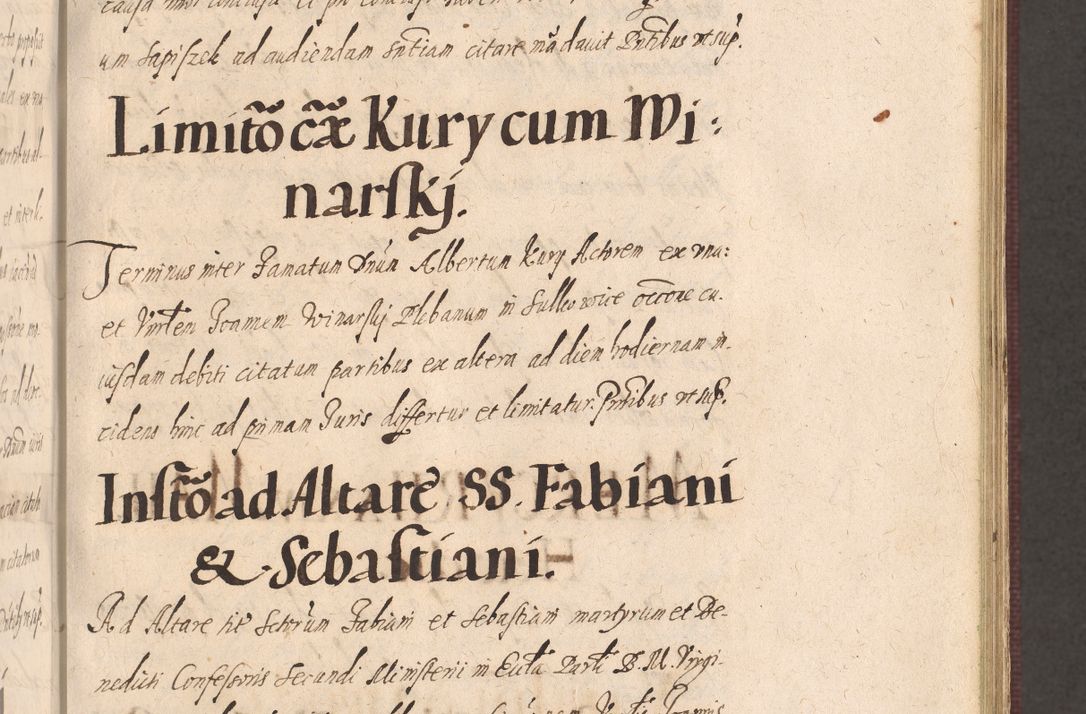 um Sapiſzek ad audiendam sn̄tiam citare mādavit Pn̄tibus ut sup.
Limitõ cãæ Kury cum Wi:
narſkj.
Terminus inter Famatum Dn̄um Albertum Kury Actorem ex una:
et Vnr̄tem Joannem Winarſkj Plebanum in Sulkowice occōne cu.
iuſdam debiti citatum partibus ex altera ad diem hodiernam in.
cidens hinc ad primam Juris differtur et limitatur. Pn̄tibus ut sup.
Inſtõ ad Altare SS. Fabiani
& Sebaſtiani.
Ad Altare tit Sctorum Fabiani et Sebaſtiani martyrum et Be-
nedicti Confeſsoris Secundi Miniſterii in Eccl̄a Par̄li B. M. Virgi-